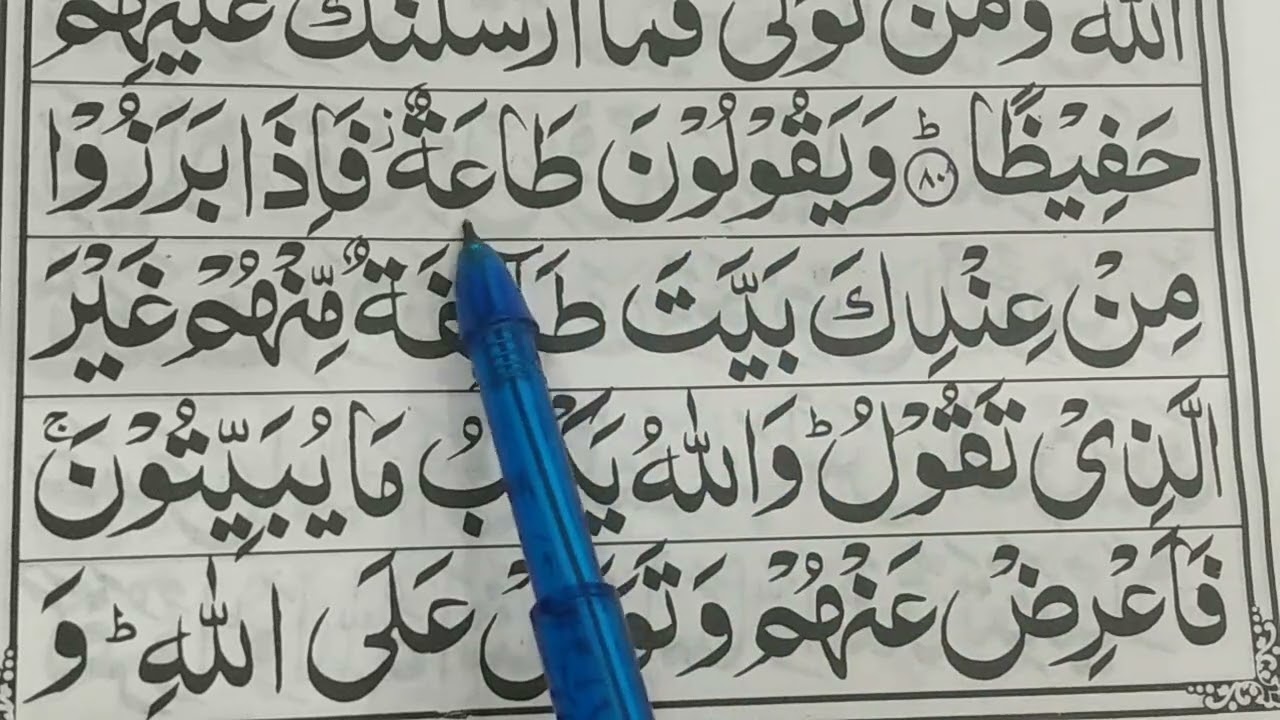 اللّٰهَ وَمَنْ تَوَلّٰى فَمَاۤ اَرْسَلْنٰكَ عَلَيْهِمْ
حَفِيْظًا ؕ﴿۸۰﴾ وَيَقُوْلُوْنَ طَاعَةٌ ز فَاِذَا بَرَزُوْا
مِنْ عِنْدِكَ بَيَّتَ مِّنْهُمْ غَيْرَ
الَّذِىْ تَقُوْلُ ؕ وَاللّٰهُ مَا يُبَيِّتُوْنَ ۚ
فَاَعْرِضْ عَنْهُمْ عَلَى اللّٰهِ ؕ وَ